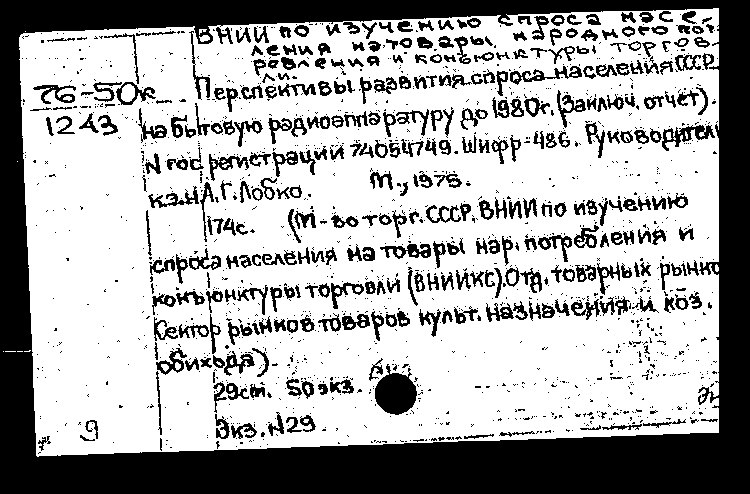 ВНИИ по изучению спроса насе-
ления на товары народного пот-
ребления и конъюнктуры торгов-
ли.
76-50к Перспективы развития спроса населения СССР
1243 на бытовую радиоаппаратуру до 1980г. (Заключ. отчет).
N гос регистрации 74054749. Шифр-486. Руководитель
к.э.н А.Г. Лобко. М., 1975.
174с. (М-во торг. СССР. ВНИИ по изучению
спроса населения на товары нар. потребления и
конъюнктуры торговли (ВНИИКС). Отд. товарных рынко
Сектор рынков товаров культ. назначения и хоз.
обихода).
29см. 50 экз.
9 Экз. N29